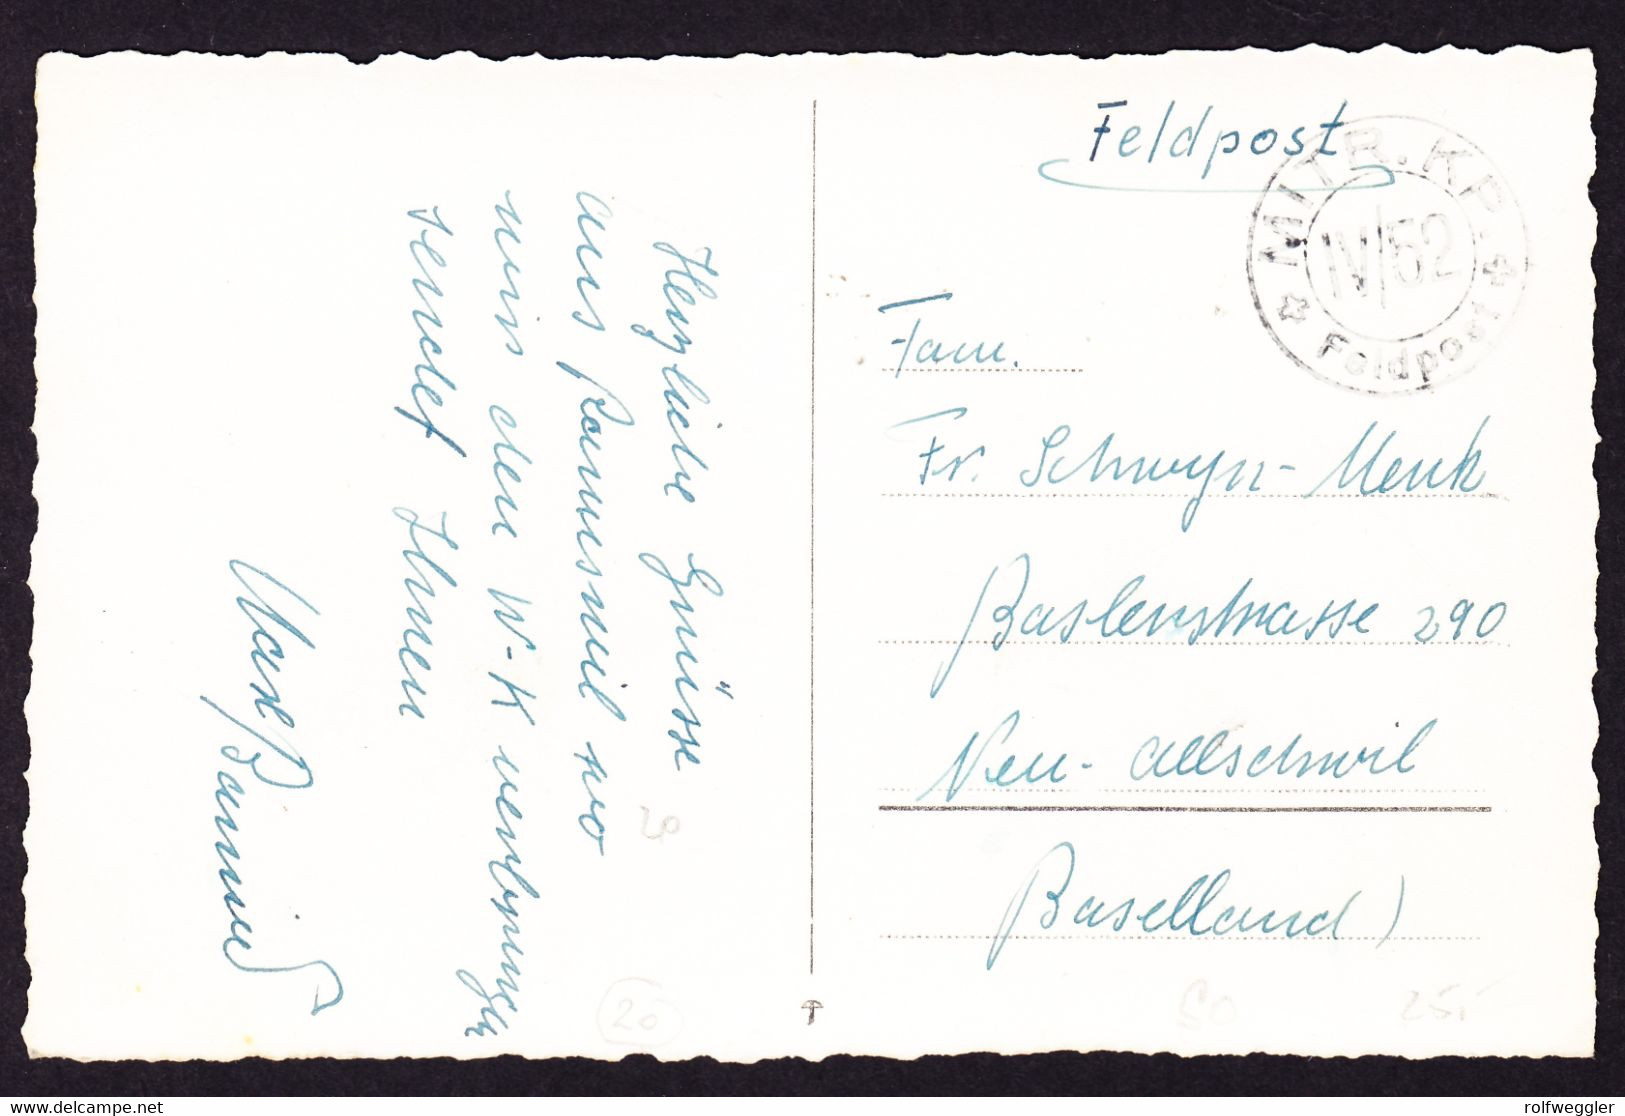 Herzliche Grüsse
aus Ramiswil wo
wir den W-K verbringen
sendet Ihnen
Feldpost
MITR. KP.
IV/52
Feldpost
Fam.
Fr. Schwyn-Menk
Baslerstrasse 290
Neu-Allschwil
Baselland)
20
20
50
25.-
www.delcampe.net
rolfweggler